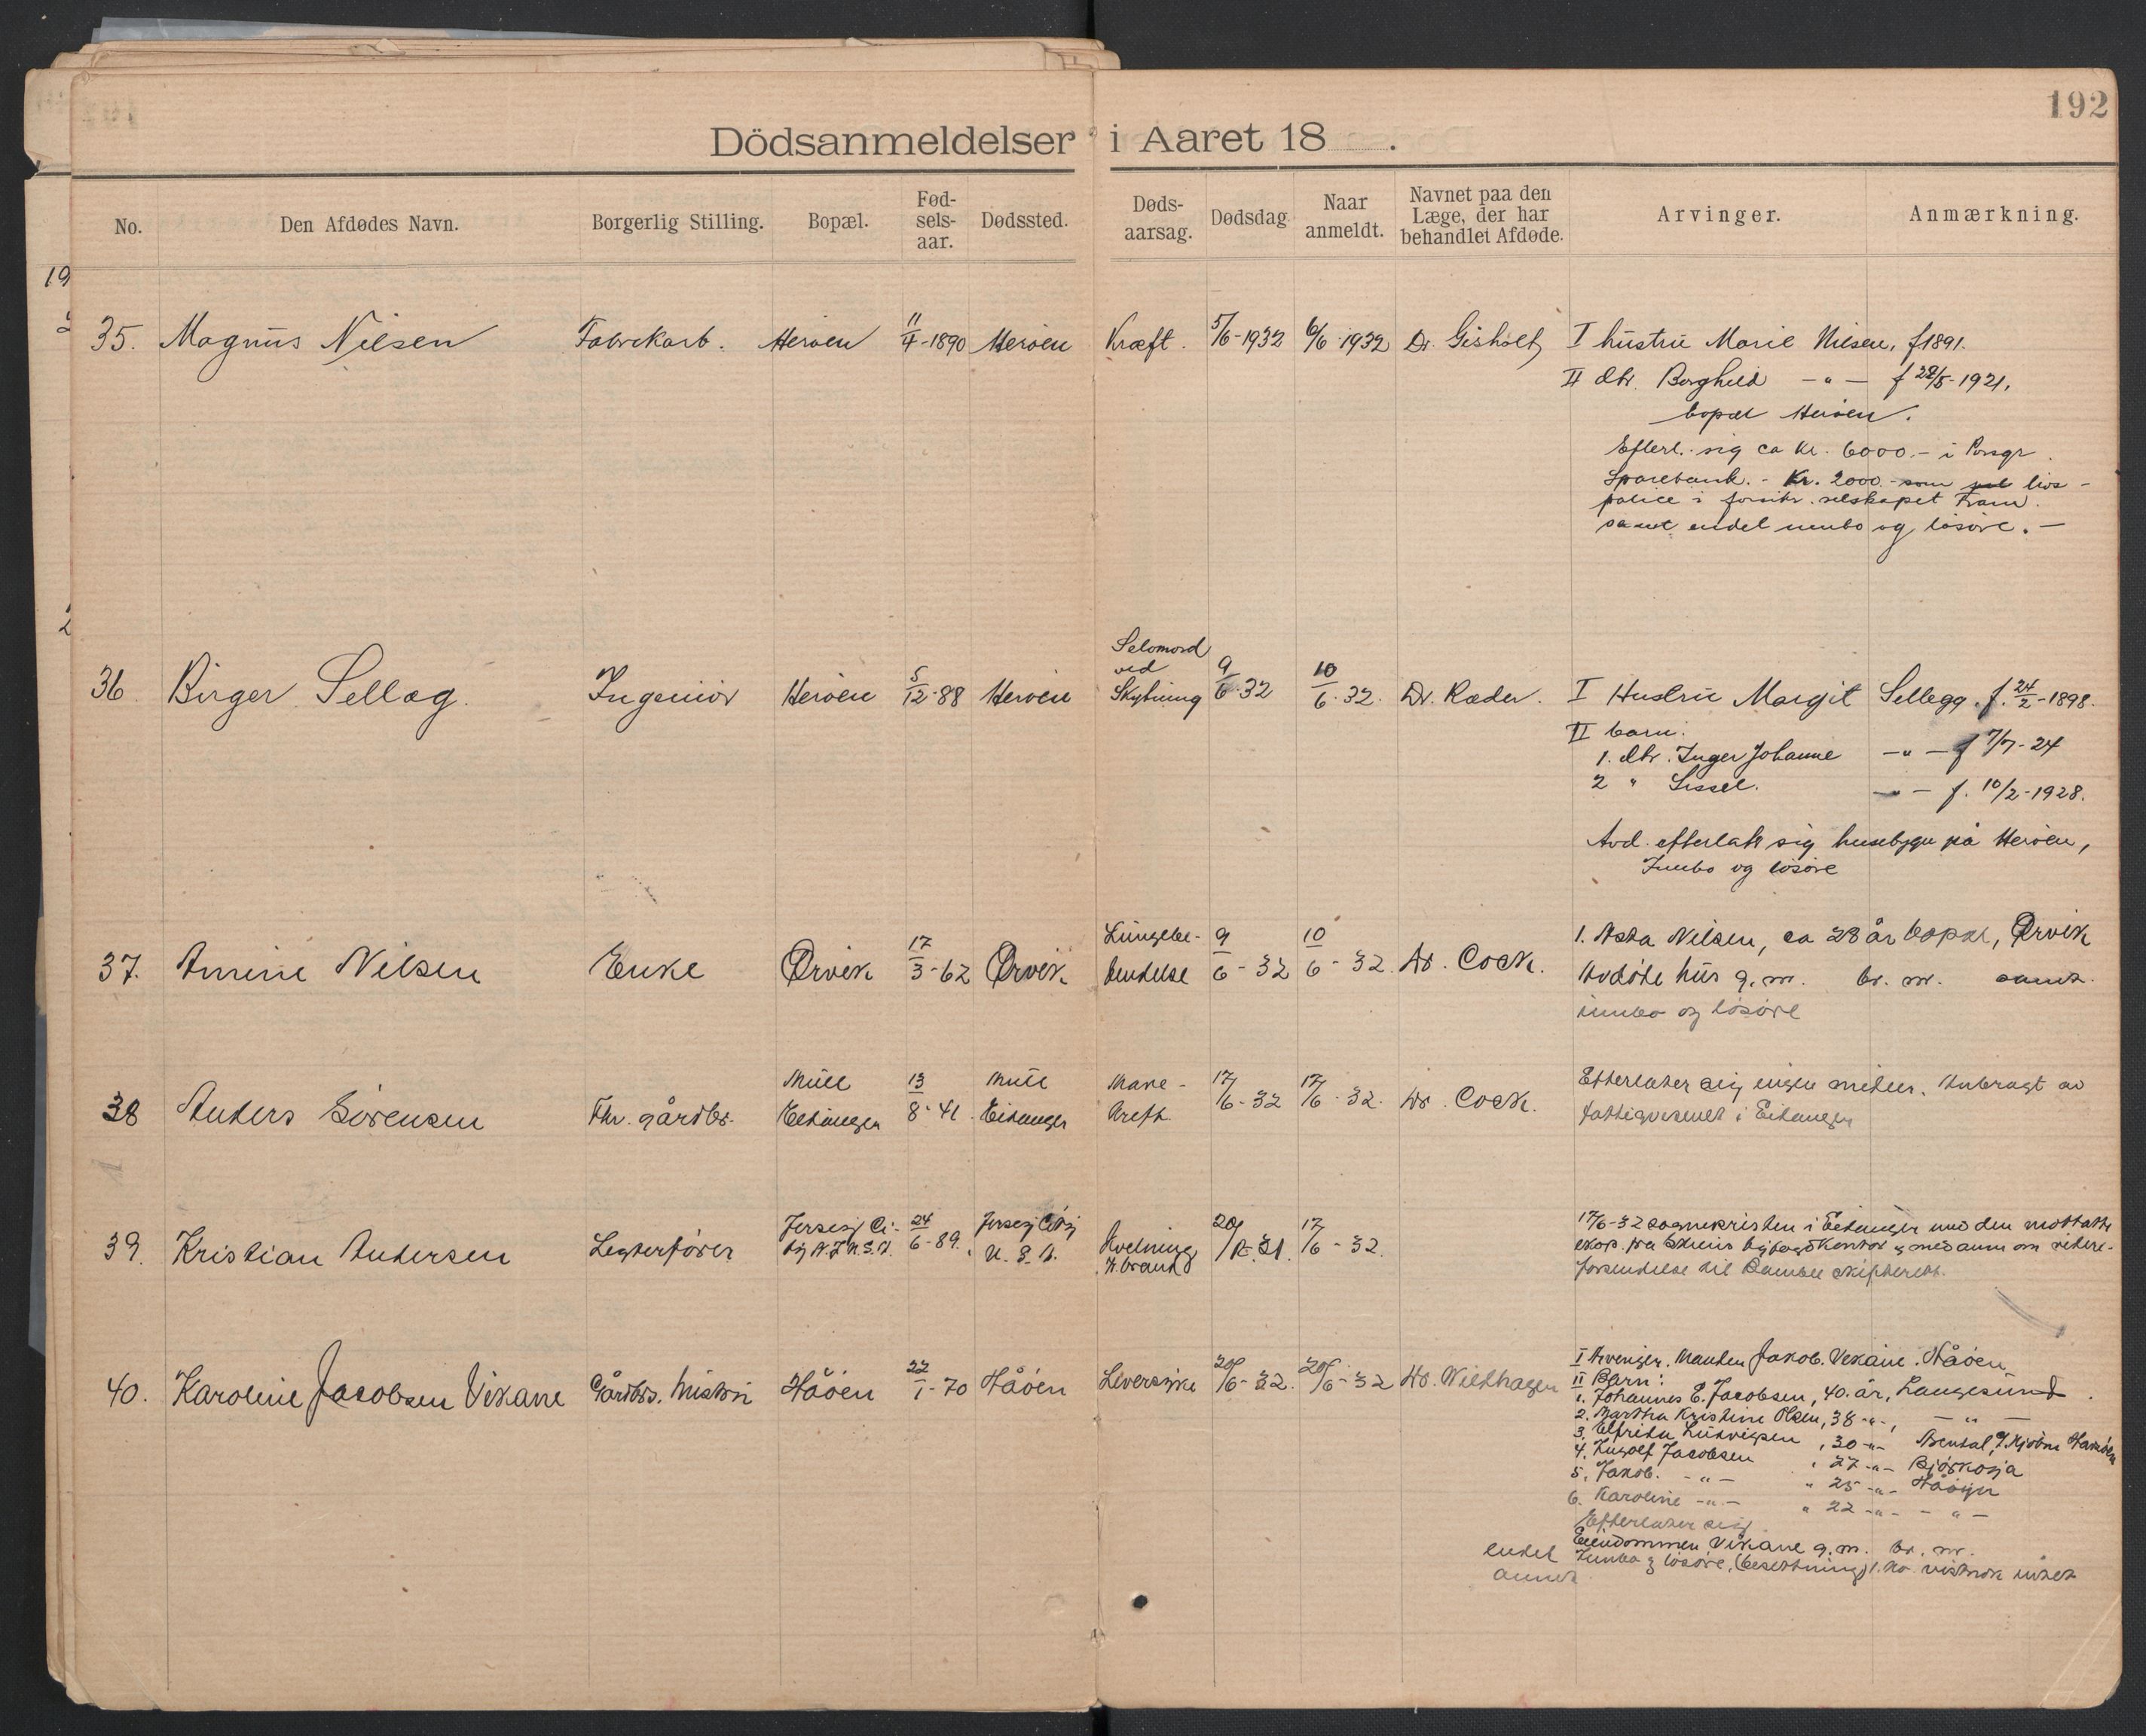 192
Dödsanmeldelser i Aaret 18 .
No. Den Afdødes Navn. Borgerlig Stilling. Bopæl. Fød-sels-aar. Dødssted. Døds-aarsag. Dødsdag Naar anmeldt. Navnet paa den Læge, der har behandlet Afdøde. Arvinger. Anmærkning.
19
35. Magnus Nilsen Fabrikarb. Herøen 11/4-1890 Herøen Kræft. 5/6-1932 6/6-1932 Dr. Gisholt I hustru Marie Nilsen, f 1891.
II dtr. Borghild -"- f 22/5-1921,
bopæl Herøen.
Efterl. sig ca kr. 6000.- i Porsgr.
Sparebank. - Kr. 2000 - som livs-
police i forsikr. selskapet Fram.
samt endel innbo og løsøre. -
36. Birger Sellæg. Ingeniør Herøen 5/12-88 Herøen Selvmord ved Skytning 9/6-32 10/6-32. Dr. Ræder. I Hustru Margit Sellegg. f. 24/2-1898.
II barn.
1. dtr. Inger Johanne -"- f 7/7-24
2 " Sissel. -"- f. 10/2-1928.
Avd. efterlatt sig husebygn på Herøen,
Innbo og løsøre
37. Amine Nilsen Enke Ørvik 17/3-62 Ørvik Lungebe-tendelse 9/6-32 10/6-32. Dr. Cock. 1. Asta Nilsen, ca 28 år bopæl, Ørvik
Avdøde hus g. nr. br. nr. samt
innbo og løsøre
38 Anders Sørensen Fhr. gårdbr. Mule Eidanger 13/8-41. Mule Eidanger Mave-kreft. 17/6-32 17/6-32. Dr. Cock. Efterlater sig ingen midler. Anbragt av
fattigvesenet i Eidanger
39. Kristian Andersen Legterfører Jersey Ci-ty N.J.U.S.A. 24/6-89. Jersey City U.S.A. Kvelning v. brand 20/12-31. 17/6-32. 17/6-32 sognepristen i Eidanger med den mottatte
eksp. fra Skiens byfogdkontor med anm om videre-
forsendelse til Bamble skifterett.
40. Karoline Jacobsen Vikane Gårdbr. hustru Håøen 22/1-70 Håøen Leversyke 20/6-32. 20/6-32 Dr. Wilthagen I Arvinger. Manden Jakob. Vekane. Håøen
II Barn:
1. Johannes E. Jacobsen, 40 år, Langesund.
2. Martha Kristine Olsen, 38 -"-, -"-
3. Elfrida Ludvigsen, 30 -"-
4. Ingolf Jacobsen, 27 -"- Bjørkøya
5. Jakob. -"- " 25 -"- Håøya
6. Karoline -"- " 22 -"- -"-
Efterlater sig
Eiendommen Vikane g.nr. br. nr.
endel Innbo & løsøre, (besetning) 1. ko. vistnok intet
annet